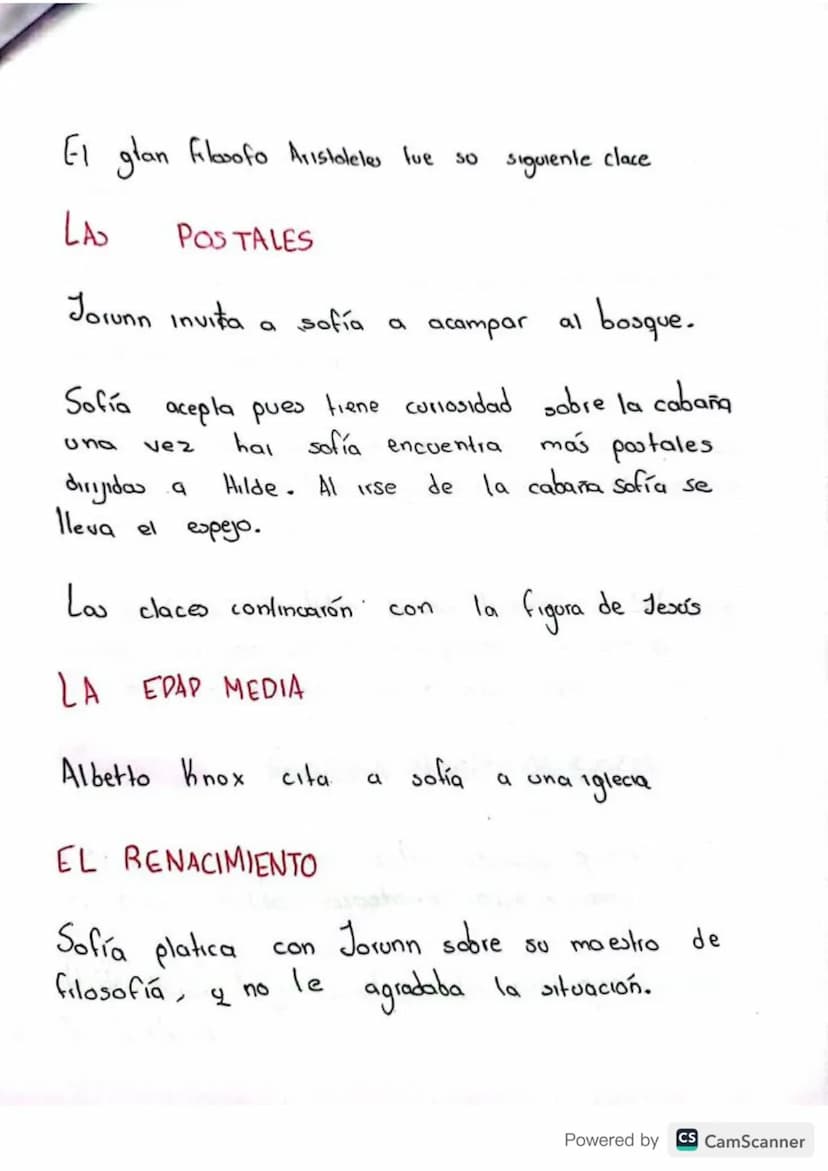 El gran filosofo Aristoteles fue so siguiente clace
LAS POSTALES
Jorunn invita a sofía a acampar al bosque.
Sofía acepta pues tiene curiosidad sobre la cabaña
una vez hai sofía encuentra más postales
dirijidas a Hilde. Al irse de la cabaña Sofía se
lleva el espejo.
Las claces contincarón con la figura de Jesús
LA EDAD MEDIA
Alberto Knox cita a sofía a una iglecia
EL RENACIMIENTO
Sofía platica con Jorunn sobre su maestro de
filosofía, y no le agradaba la situación.
Powered by CS CamScanner